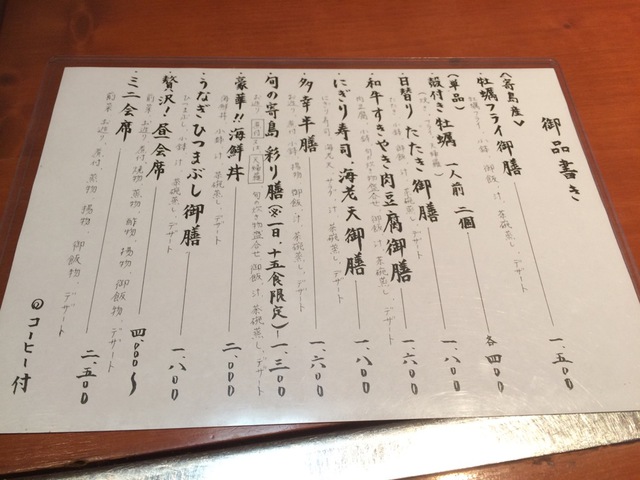 御品書き
〈寄島産〉
牡蠣フライ御膳 一、五〇〇
牡蠣フライ 小鉢 御飯 汁 茶碗蒸し デザート
(単品)
殻付き牡蠣 一人前 二個 各四〇〇
日替り たたき御膳 一、八〇〇
たたき 小鉢 御飯 汁 茶碗蒸し、デザート
和牛すきやき肉豆腐御膳 一、六〇〇
肉豆腐 小鉢 御飯 汁 茶碗蒸し、デザート
にぎり寿司、海老天御膳 一、八〇〇
にぎり寿司 海老天 サラダ 汁 茶碗蒸し、デザート
多幸半膳 一、六〇〇
お造り 煮付 小鉢 揚物 御飯 汁 茶碗蒸し、デザート
旬の寄島 彩り膳(※一日、十五食限定) 一、三〇〇
お造り 天婦羅 旬の炊き物盛合せ 御飯 汁 茶碗蒸し、デザート
豪華!! 海鮮丼 二、〇〇〇
海鮮丼 小鉢 汁 茶碗蒸し、デザート
・うなぎひつまぶし御膳 一、八〇〇
ひつまぶし 小鉢 汁 茶碗蒸し、デザート
・贅沢!昼会席 四、〇〇〇〜
前菜 お造り 煮付 焼物 蒸物 酢物 揚物 御飯物 デザート
・ミニ会席 二、五〇〇
前菜 お造り、煮付、蒸物 揚物、御飯物、デザート
コーヒー付